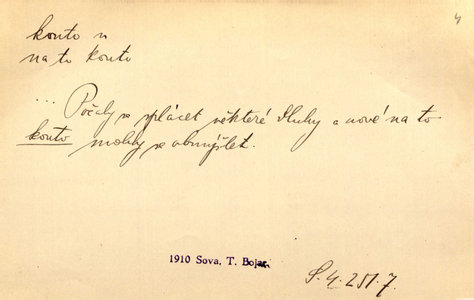 konto n
na to konto
... Počaly se splácet některé dluhy a nové na to
konto mohly se obmýšlet.
1910 Sova, T. Bojar.
S. 4. 251. 7.